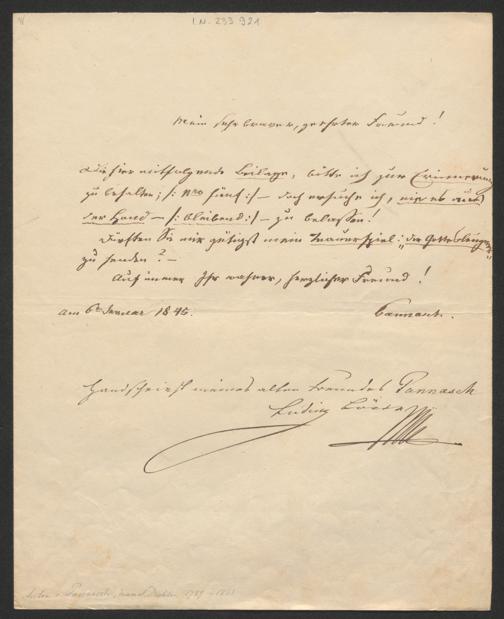 I.N. 233 921
Mein sehr braver, geehrter Freund!
Die hier mitfolgende Beilage, bitte ich zur Erinnerung
zu behalten; /: Nro fünf :/ – doch ersuche ich, nie es aus
der Hand – /: bleibend :/ – zu belassen!
Dürften Sie mir gütigst mein Trauerspiel: „die
zu senden? –
Auf immer Ihr wahrer, herzlicher Freund!
am 6t Januar 1845.
Pannasch.
Handschrift meines alten Freundes Pannasch
Ludwig Löwe
Anton v. Pannasch, Dichter 1789 – 18